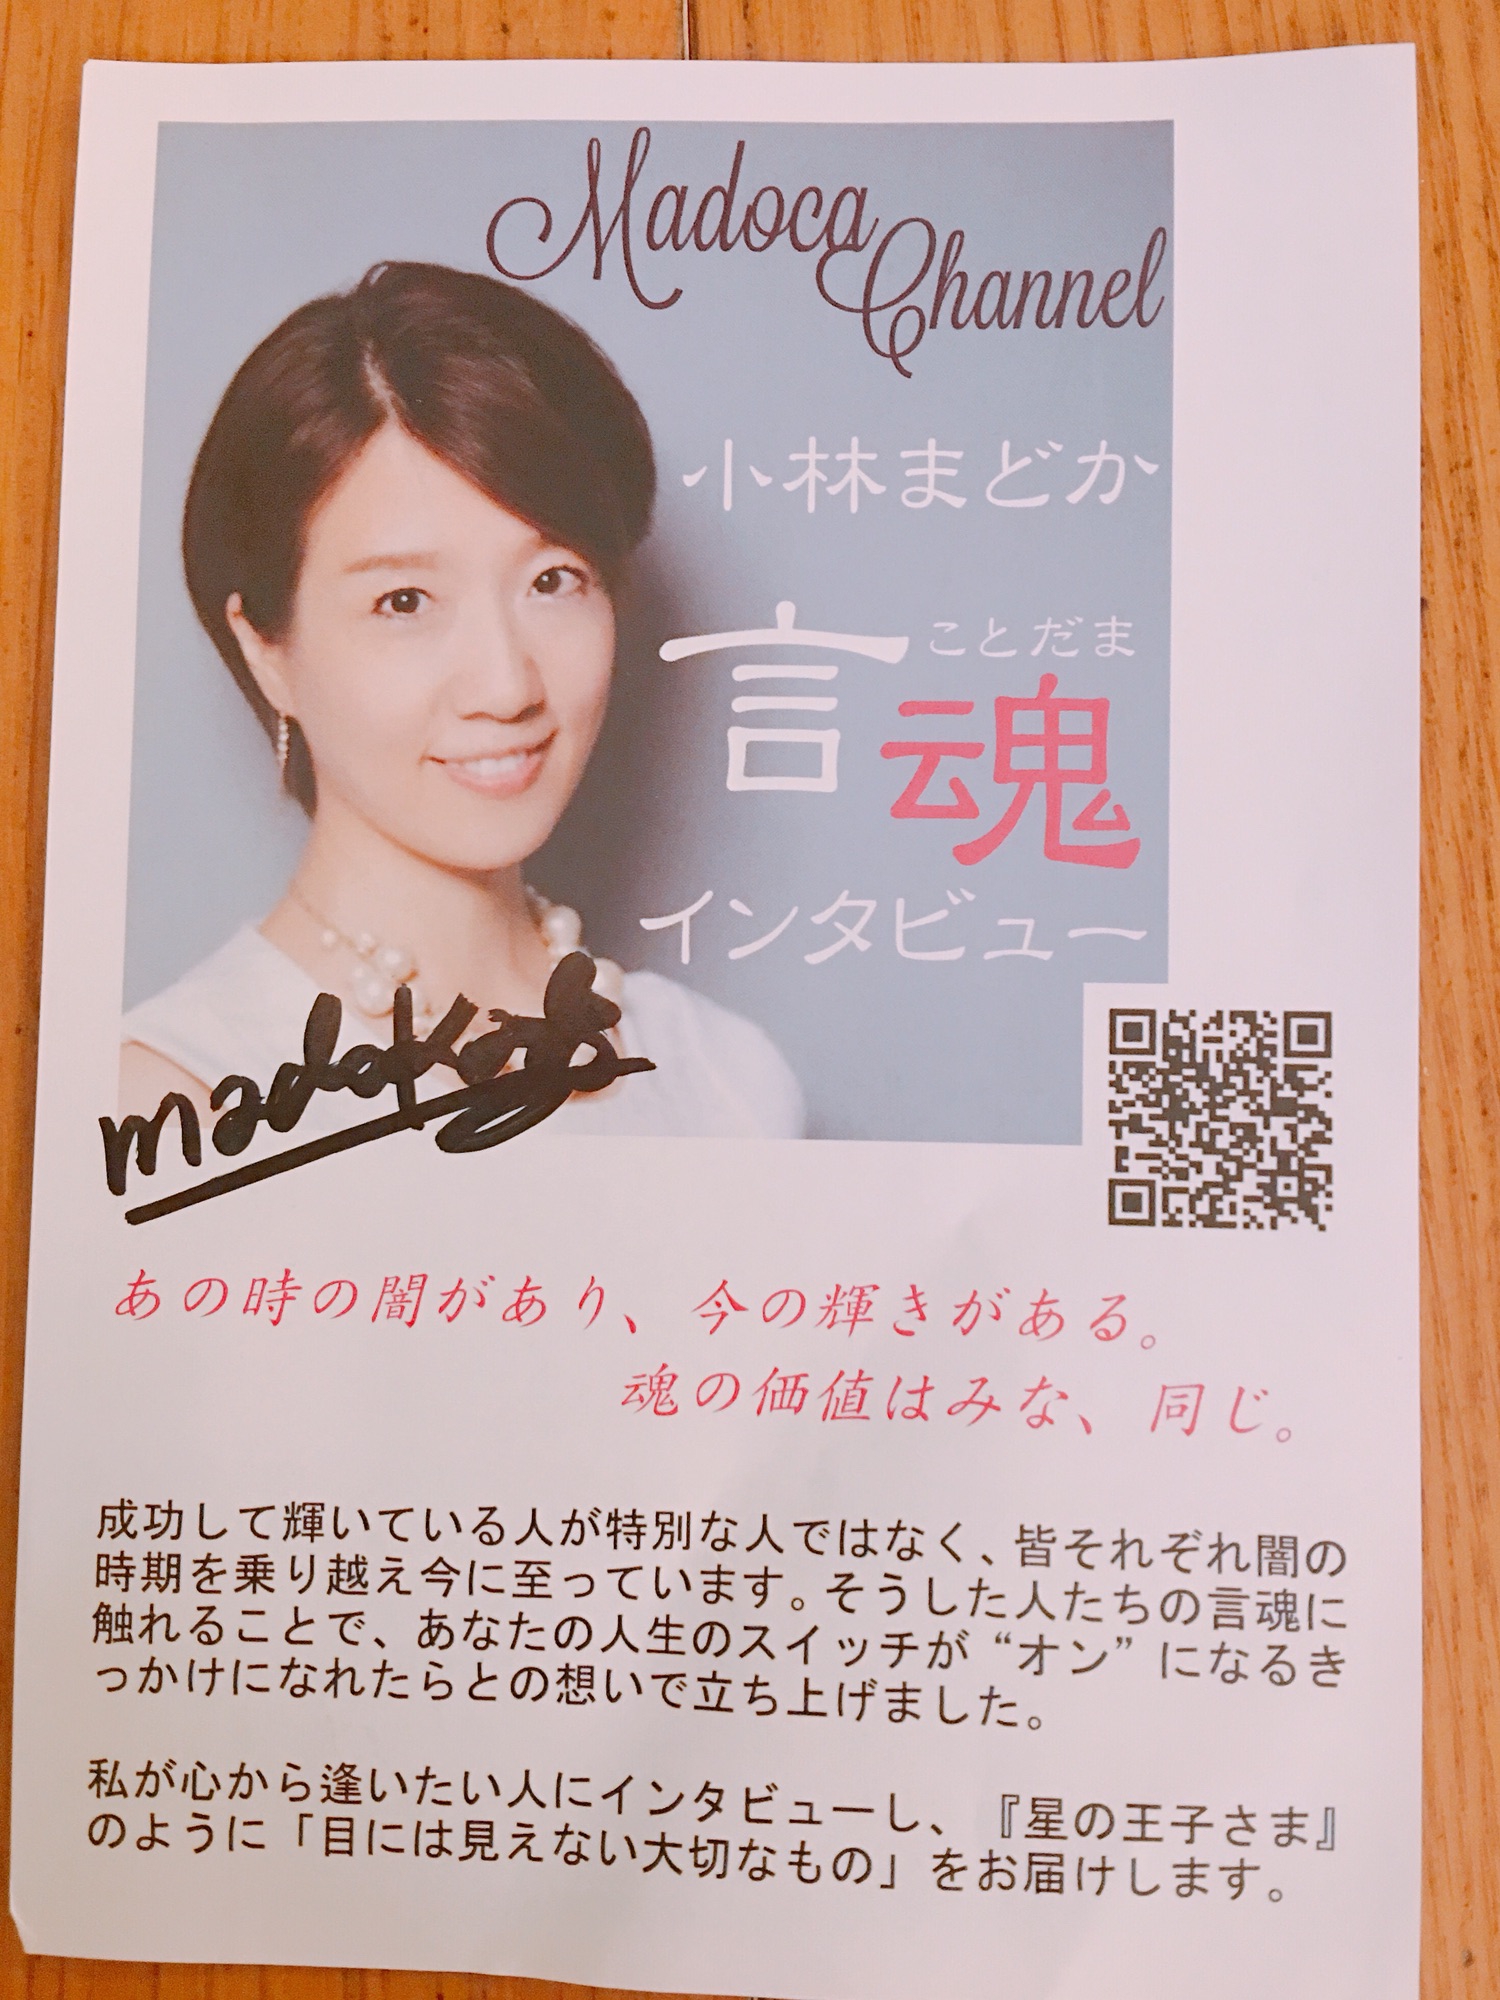 Madoca
Channel
小林まどか
ことだま
言魂
インタビュー
あの時の闇があり、今の輝きがある。
魂の価値はみな、同じ。
成功して輝いている人が特別な人ではなく、皆それぞれ闇の
時期を乗り越え今に至っています。そうした人たちの言魂に
触れることで、あなたの人生のスイッチが“オン”になるき
っかけになれたらとの想いで立ち上げました。
私が心から逢いたい人にインタビューし、『星の王子さま』
のように「目には見えない大切なもの」をお届けします。